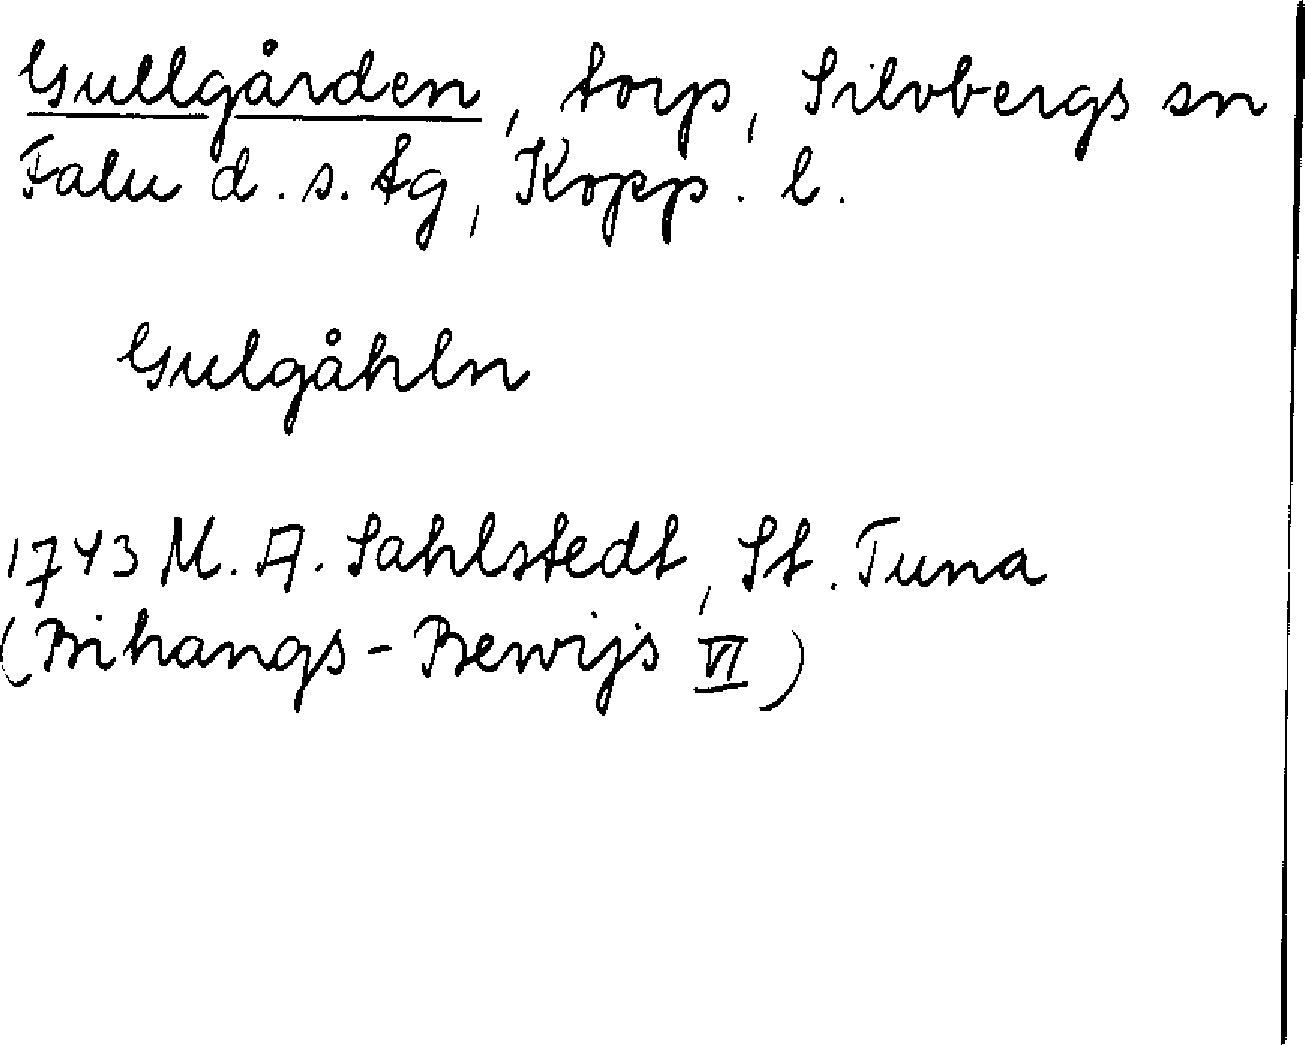 Gullgården, torp, Silvbergs sn
Falu d. s. tg, Kopp. l.
Gulgåhln
1743 M. A. Sahlstedt, St. Tuna
(Bihangs-Bewijs VI)